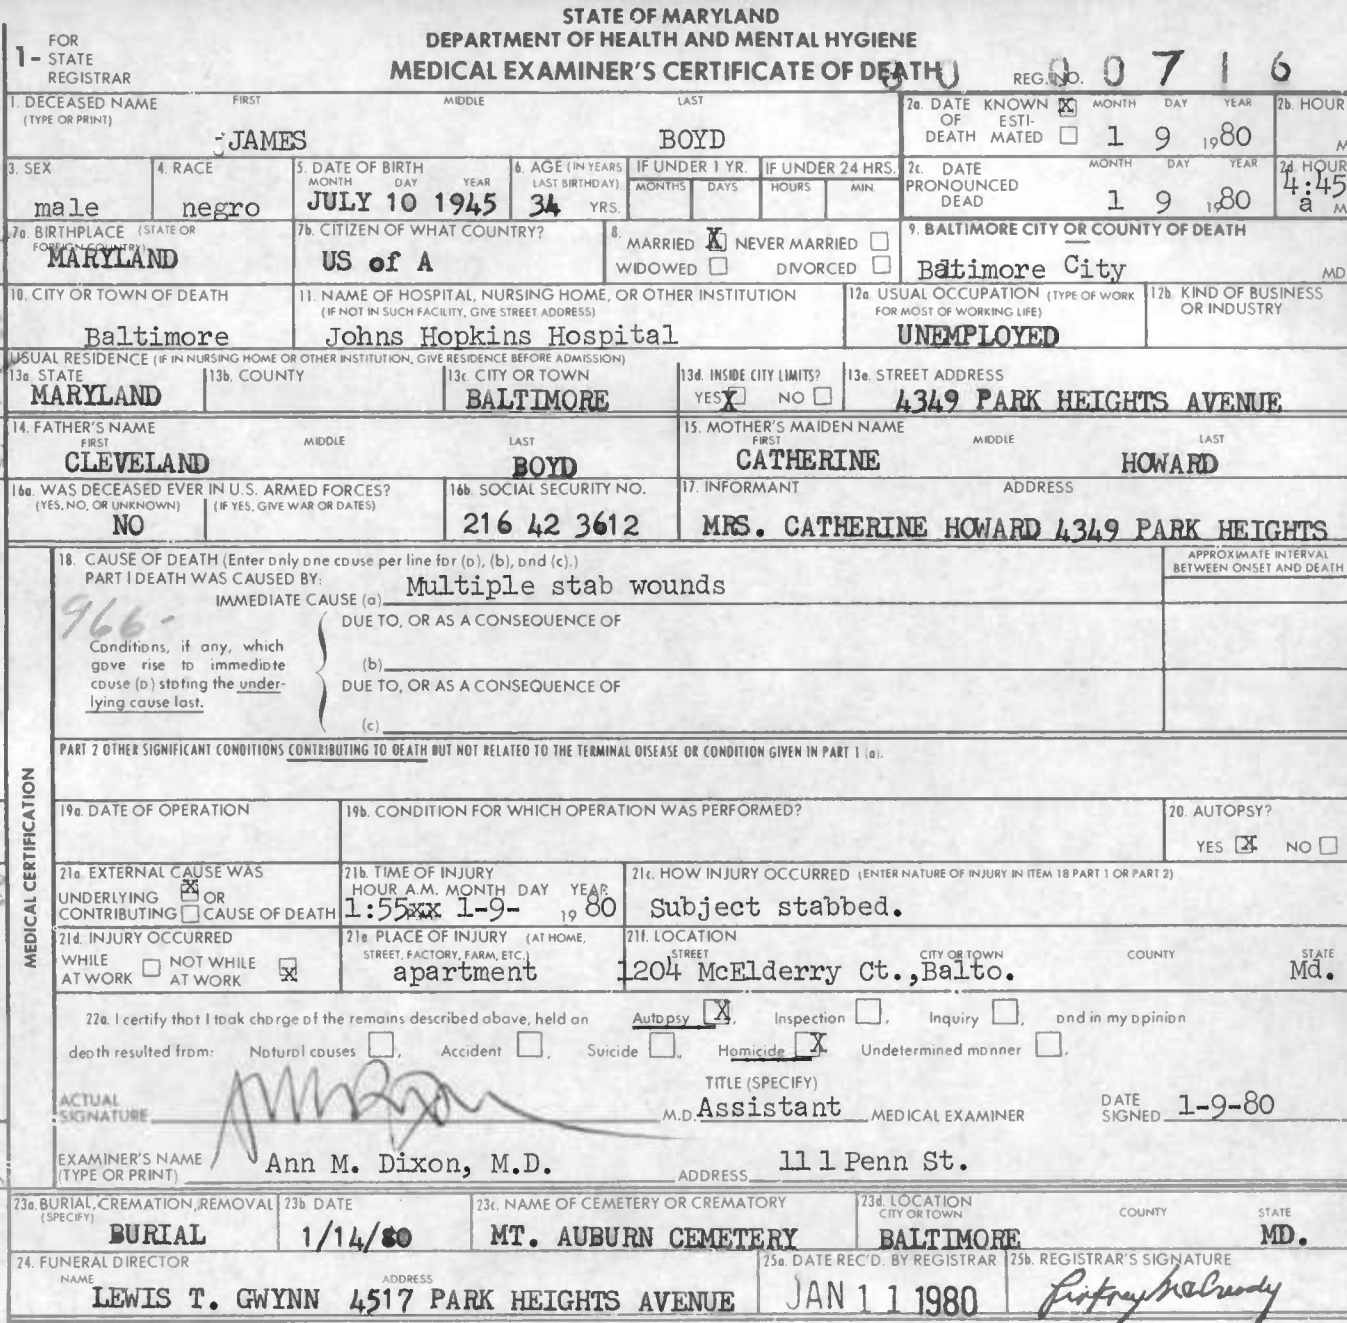 STATE OF MARYLAND
DEPARTMENT OF HEALTH AND MENTAL HYGIENE
MEDICAL EXAMINER'S CERTIFICATE OF DEATH
1- FOR STATE REGISTRAR
REG. NO. 80 00716
1. DECEASED NAME (TYPE OR PRINT) FIRST MIDDLE LAST
JAMES BOYD
2a. DATE OF DEATH KNOWN X ESTIMATED MONTH DAY YEAR
1 9 1980
2b. HOUR M
3. SEX
male
4. RACE
negro
5. DATE OF BIRTH MONTH DAY YEAR
JULY 10 1945
6. AGE (IN YEARS LAST BIRTHDAY)
34 YRS.
IF UNDER 1 YR. MONTHS DAYS
IF UNDER 24 HRS. HOURS MIN.
2c. DATE PRONOUNCED DEAD MONTH DAY YEAR
1 9 1980
2d. HOUR
4:45 a M
7a. BIRTHPLACE (STATE OR FOREIGN COUNTRY)
MARYLAND
7b. CITIZEN OF WHAT COUNTRY?
US of A
8. MARRIED X NEVER MARRIED
WIDOWED DIVORCED
9. BALTIMORE CITY OR COUNTY OF DEATH
Batimore City MD
10. CITY OR TOWN OF DEATH
Baltimore
11. NAME OF HOSPITAL, NURSING HOME, OR OTHER INSTITUTION
(IF NOT IN SUCH FACILITY, GIVE STREET ADDRESS)
Johns Hopkins Hospital
12a. USUAL OCCUPATION (TYPE OF WORK FOR MOST OF WORKING LIFE)
UNEMPLOYED
12b. KIND OF BUSINESS OR INDUSTRY
USUAL RESIDENCE (IF IN NURSING HOME OR OTHER INSTITUTION, GIVE RESIDENCE BEFORE ADMISSION)
13a. STATE
MARYLAND
13b. COUNTY
13c. CITY OR TOWN
BALTIMORE
13d. INSIDE CITY LIMITS?
YES X NO
13e. STREET ADDRESS
4349 PARK HEIGHTS AVENUE
14. FATHER'S NAME FIRST MIDDLE LAST
CLEVELAND BOYD
15. MOTHER'S MAIDEN NAME FIRST MIDDLE LAST
CATHERINE HOWARD
16a. WAS DECEASED EVER IN U.S. ARMED FORCES?
(YES, NO, OR UNKNOWN) (IF YES, GIVE WAR OR DATES)
NO
16b. SOCIAL SECURITY NO.
216 42 3612
17. INFORMANT ADDRESS
MRS. CATHERINE HOWARD 4349 PARK HEIGHTS
MEDICAL CERTIFICATION
18. CAUSE OF DEATH (Enter only one cause per line for (a), (b), and (c).)
APPROXIMATE INTERVAL BETWEEN ONSET AND DEATH
PART I DEATH WAS CAUSED BY:
IMMEDIATE CAUSE (a) Multiple stab wounds
966-
Conditions, if any, which gave rise to immediate cause (a) stating the underlying cause last.
DUE TO, OR AS A CONSEQUENCE OF
(b)
DUE TO, OR AS A CONSEQUENCE OF
(c)
PART 2 OTHER SIGNIFICANT CONDITIONS CONTRIBUTING TO DEATH BUT NOT RELATED TO THE TERMINAL DISEASE OR CONDITION GIVEN IN PART 1 (a).
19a. DATE OF OPERATION
19b. CONDITION FOR WHICH OPERATION WAS PERFORMED?
20. AUTOPSY?
YES X NO
21a. EXTERNAL CAUSE WAS
UNDERLYING X OR
CONTRIBUTING CAUSE OF DEATH
21b. TIME OF INJURY
HOUR A.M. MONTH DAY YEAR
1:55xx 1-9- 1980
21c. HOW INJURY OCCURRED (ENTER NATURE OF INJURY IN ITEM 18 PART 1 OR PART 2)
Subject stabbed.
21d. INJURY OCCURRED
WHILE AT WORK NOT WHILE AT WORK X
21e. PLACE OF INJURY (AT HOME, STREET, FACTORY, FARM, ETC.)
apartment
21f. LOCATION STREET CITY OR TOWN COUNTY STATE
1204 McElderry Ct., Balto. Md.
22a. I certify that I took charge of the remains described above, held an Autopsy X, Inspection, Inquiry, and in my opinion
death resulted from: Natural causes, Accident, Suicide, Homicide X Undetermined manner.
ACTUAL SIGNATURE
M.D.
TITLE (SPECIFY)
Assistant MEDICAL EXAMINER
DATE SIGNED 1-9-80
EXAMINER'S NAME (TYPE OR PRINT) Ann M. Dixon, M.D.
ADDRESS 111 Penn St.
23a. BURIAL, CREMATION, REMOVAL (SPECIFY)
BURIAL
23b. DATE
1/14/80
23c. NAME OF CEMETERY OR CREMATORY
MT. AUBURN CEMETERY
23d. LOCATION CITY OR TOWN COUNTY STATE
BALTIMORE MD.
24. FUNERAL DIRECTOR
NAME ADDRESS
LEWIS T. GWYNN 4517 PARK HEIGHTS AVENUE
25a. DATE REC'D. BY REGISTRAR
JAN 11 1980
25b. REGISTRAR'S SIGNATURE